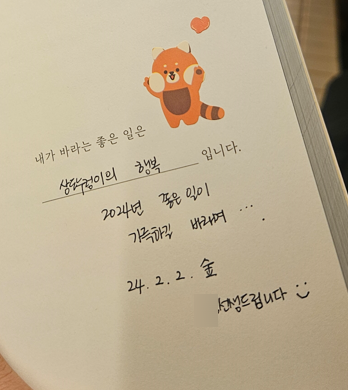 내가 바라는 좋은 일은
행복 입니다.
2024년 좋은 일이
가득하길 바라며 ...
24. 2. 2. 金
드립니다 :)